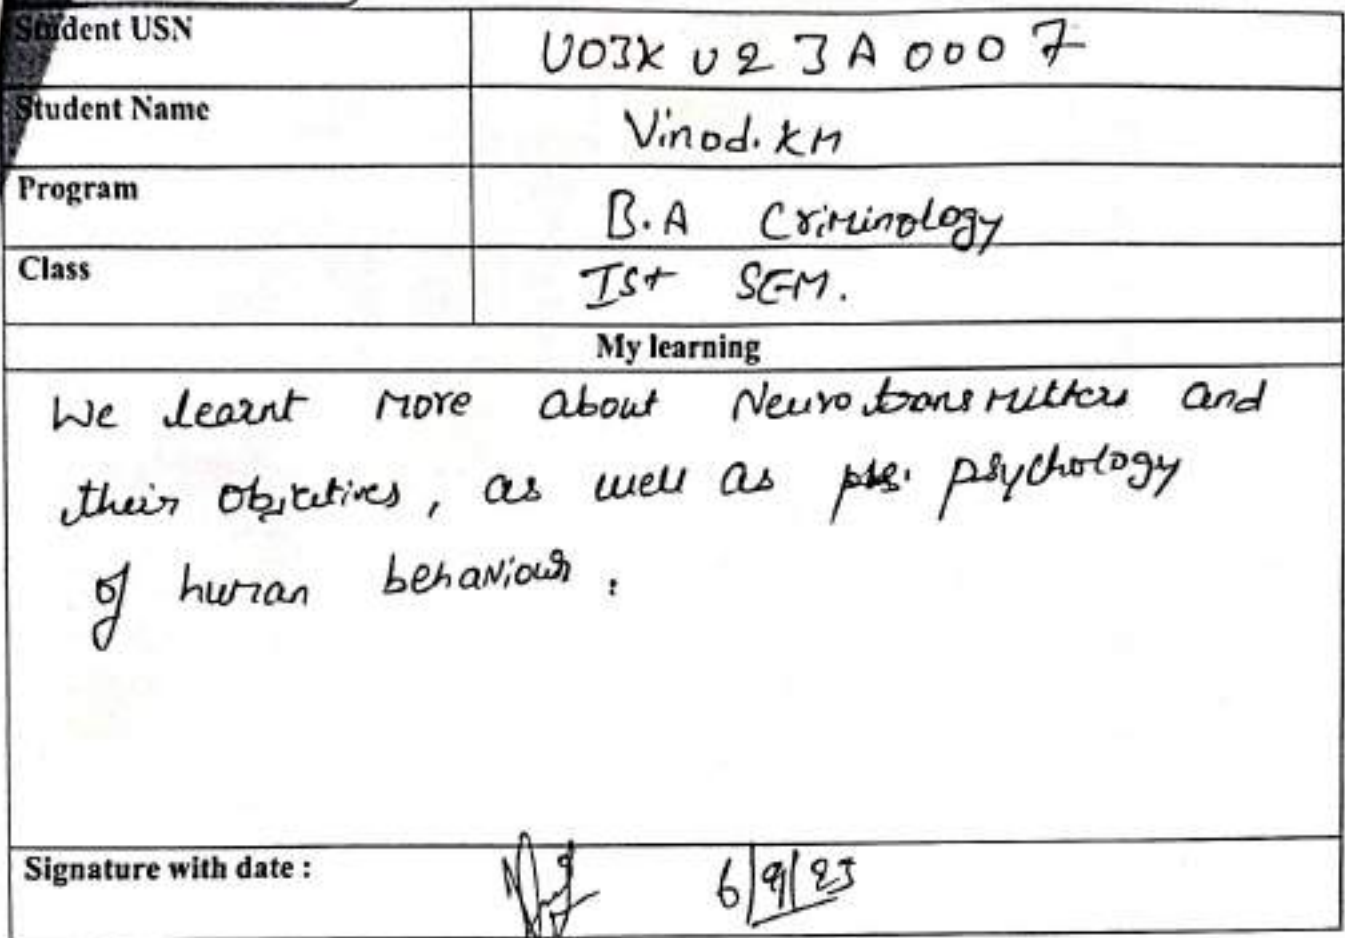 Student USN U03KU23A0007
Student Name Vinod. KM
Program B.A Criminology
Class Ist SEM.
My learning
We learnt more about Neurotransmitters and
their objectives, as well as psychology
of human behaviour.
Signature with date : 6/9/23